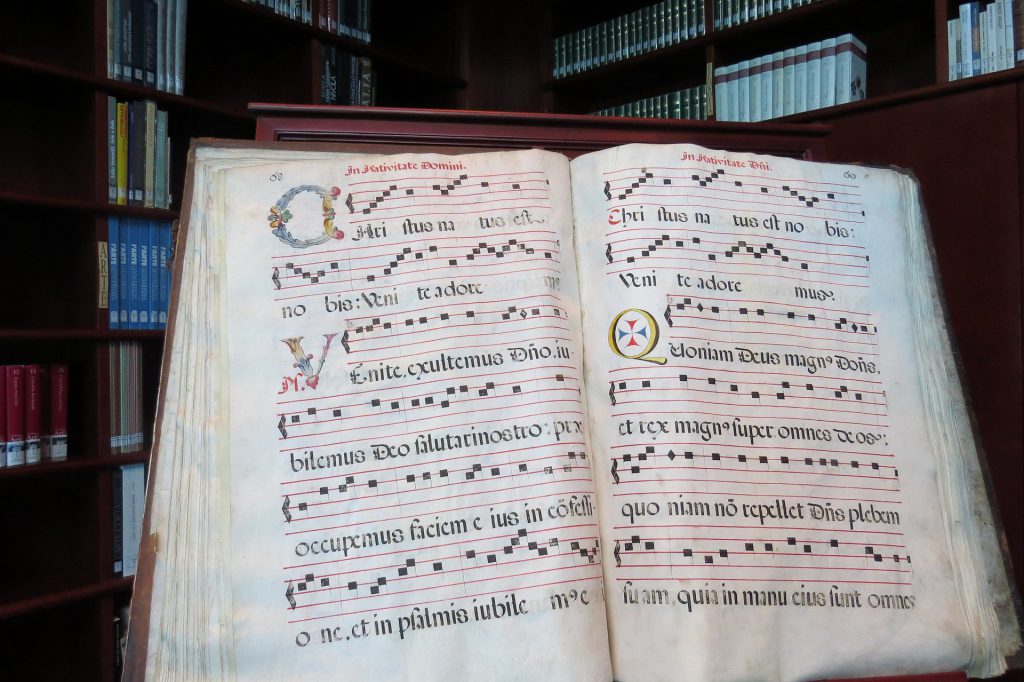 ARTE
68
In Nativitate Domini.
CHri stus na tus est
no bis: Veni te adore m⁹
Ps. VEnite, exultemus Dño, iu-
bilemus Deo salutari nostro: præ
occupemus faciem e ius in cõfessi-
o ne, et in psalmis iubile m⁹ e
In Nativitate Dñi.
69
Chri stus na tus est no bis:
Veni te adore mus:
Quoniam Deus magn⁹ Doñs,
et rex magn⁹ super omnes deos:
quo niam nõ repellet Dñs plebem
su am, quia in manu eius sunt omnes